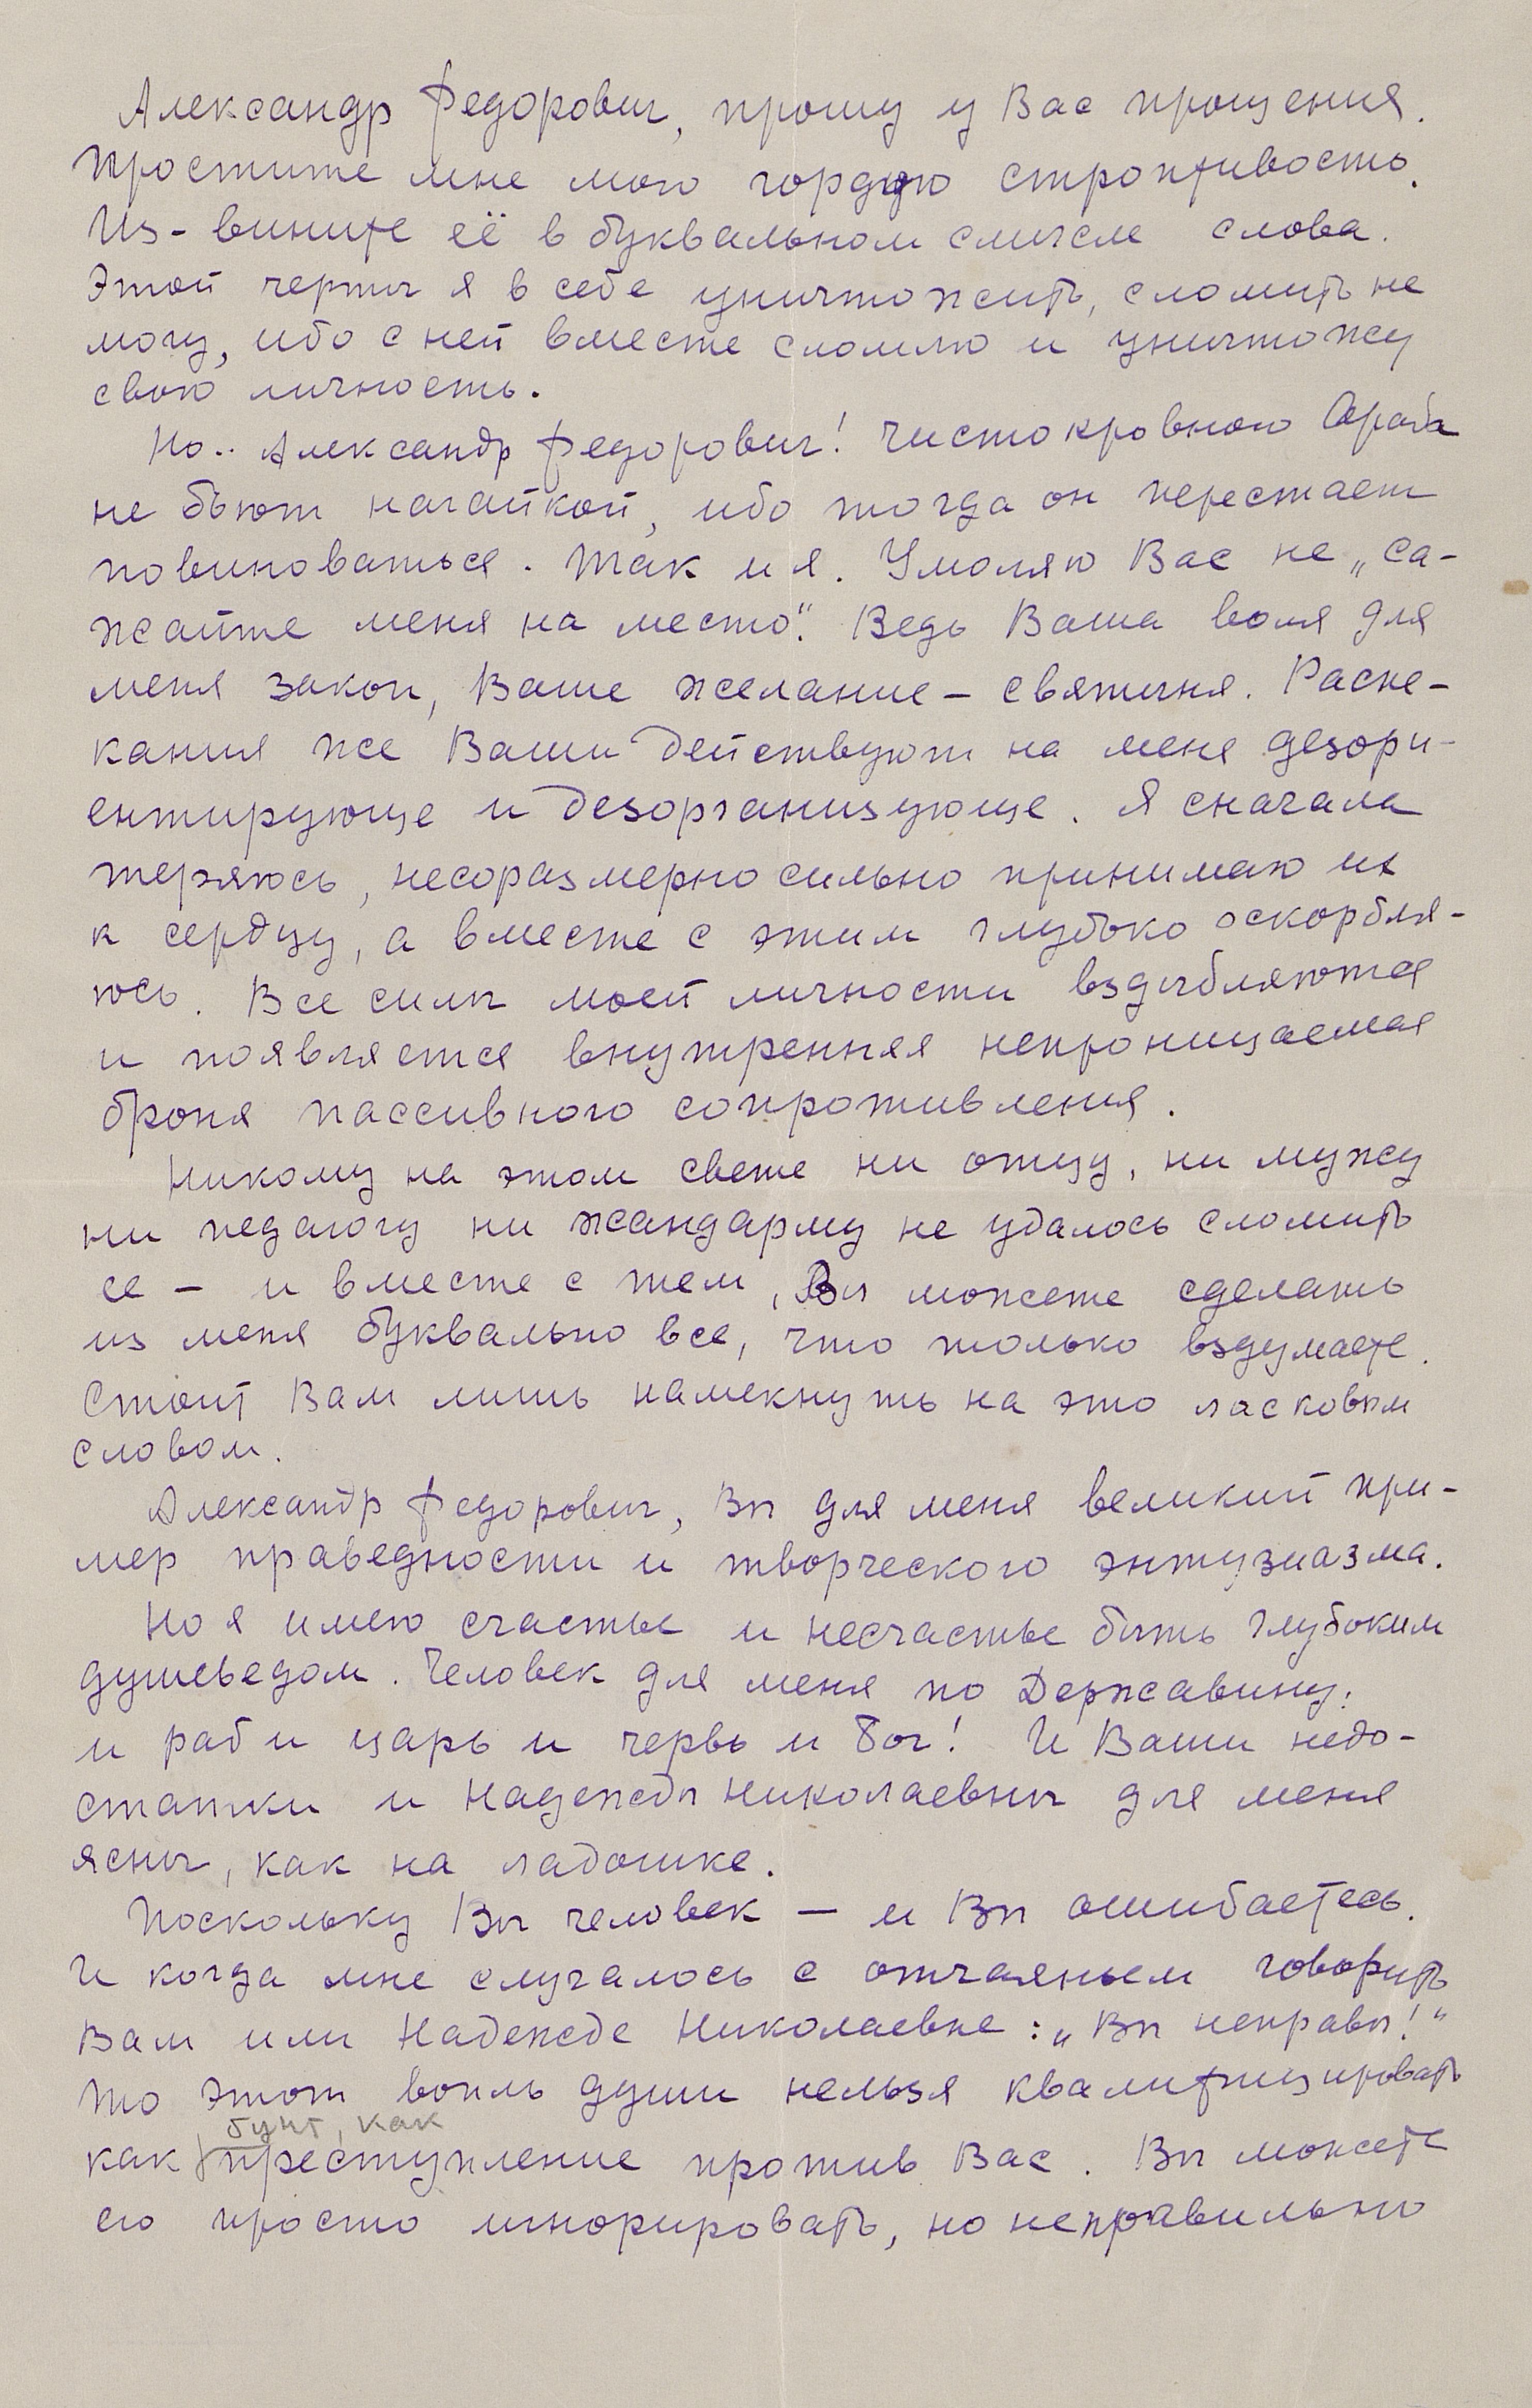 Александр Федорович, прошу у Вас прощения.
Простите мне мою гордую строптивость.
Из-вините её в буквальном смысле слова.
Этой черты я в себе уничтожить, сломить не
могу, ибо с ней вместе сломлю и уничтожу
свою личность.
Но.. Александр Федорович! Чистокровного Араба
не бьют нагайкой, ибо тогда он перестает
повиноваться. Так и я. Умоляю Вас не „са-
жайте меня на место“. Ведь Ваша воля для
меня закон, Ваше желание – святыня. Распе-
кания же Ваши действуют на меня дезори-
ентирующе и дезорганизующе. Я сначала
теряюсь, несоразмерно сильно принимаю их
к сердцу, а вместе с этим глубоко оскорбля-
юсь. Все силы моей личности вздыбляются
и появляется внутренняя непроницаемая
броня пассивного сопротивления.
Никому на этом свете ни отцу, ни мужу
ни педагогу ни жандарму не удалось сломить
ее – и вместе с тем, Вы можете сделать
из меня буквально все, что только вздумаете.
Стоит Вам лишь намекнуть на это ласковым
словом.
Александр Федорович, Вы для меня великий при-
мер праведности и творческого энтузиазма.
Но я имею счастье и несчастье быть глубоким
душеведом. Человек для меня по Державину:
и раб и царь и червь и бог! И Ваши недо-
статки и Надежды Николаевны для меня
ясны, как на ладошке.
Поскольку Вы человек – и Вы ошибаетесь.
И когда мне случалось с отчаяньем говорить
Вам или Надежде Николаевне: „Вы неправы!“
то этот вопль души нельзя квалифицировать
бунт, как
как преступление против Вас. Вы можете
его просто игнорировать, но неправильно